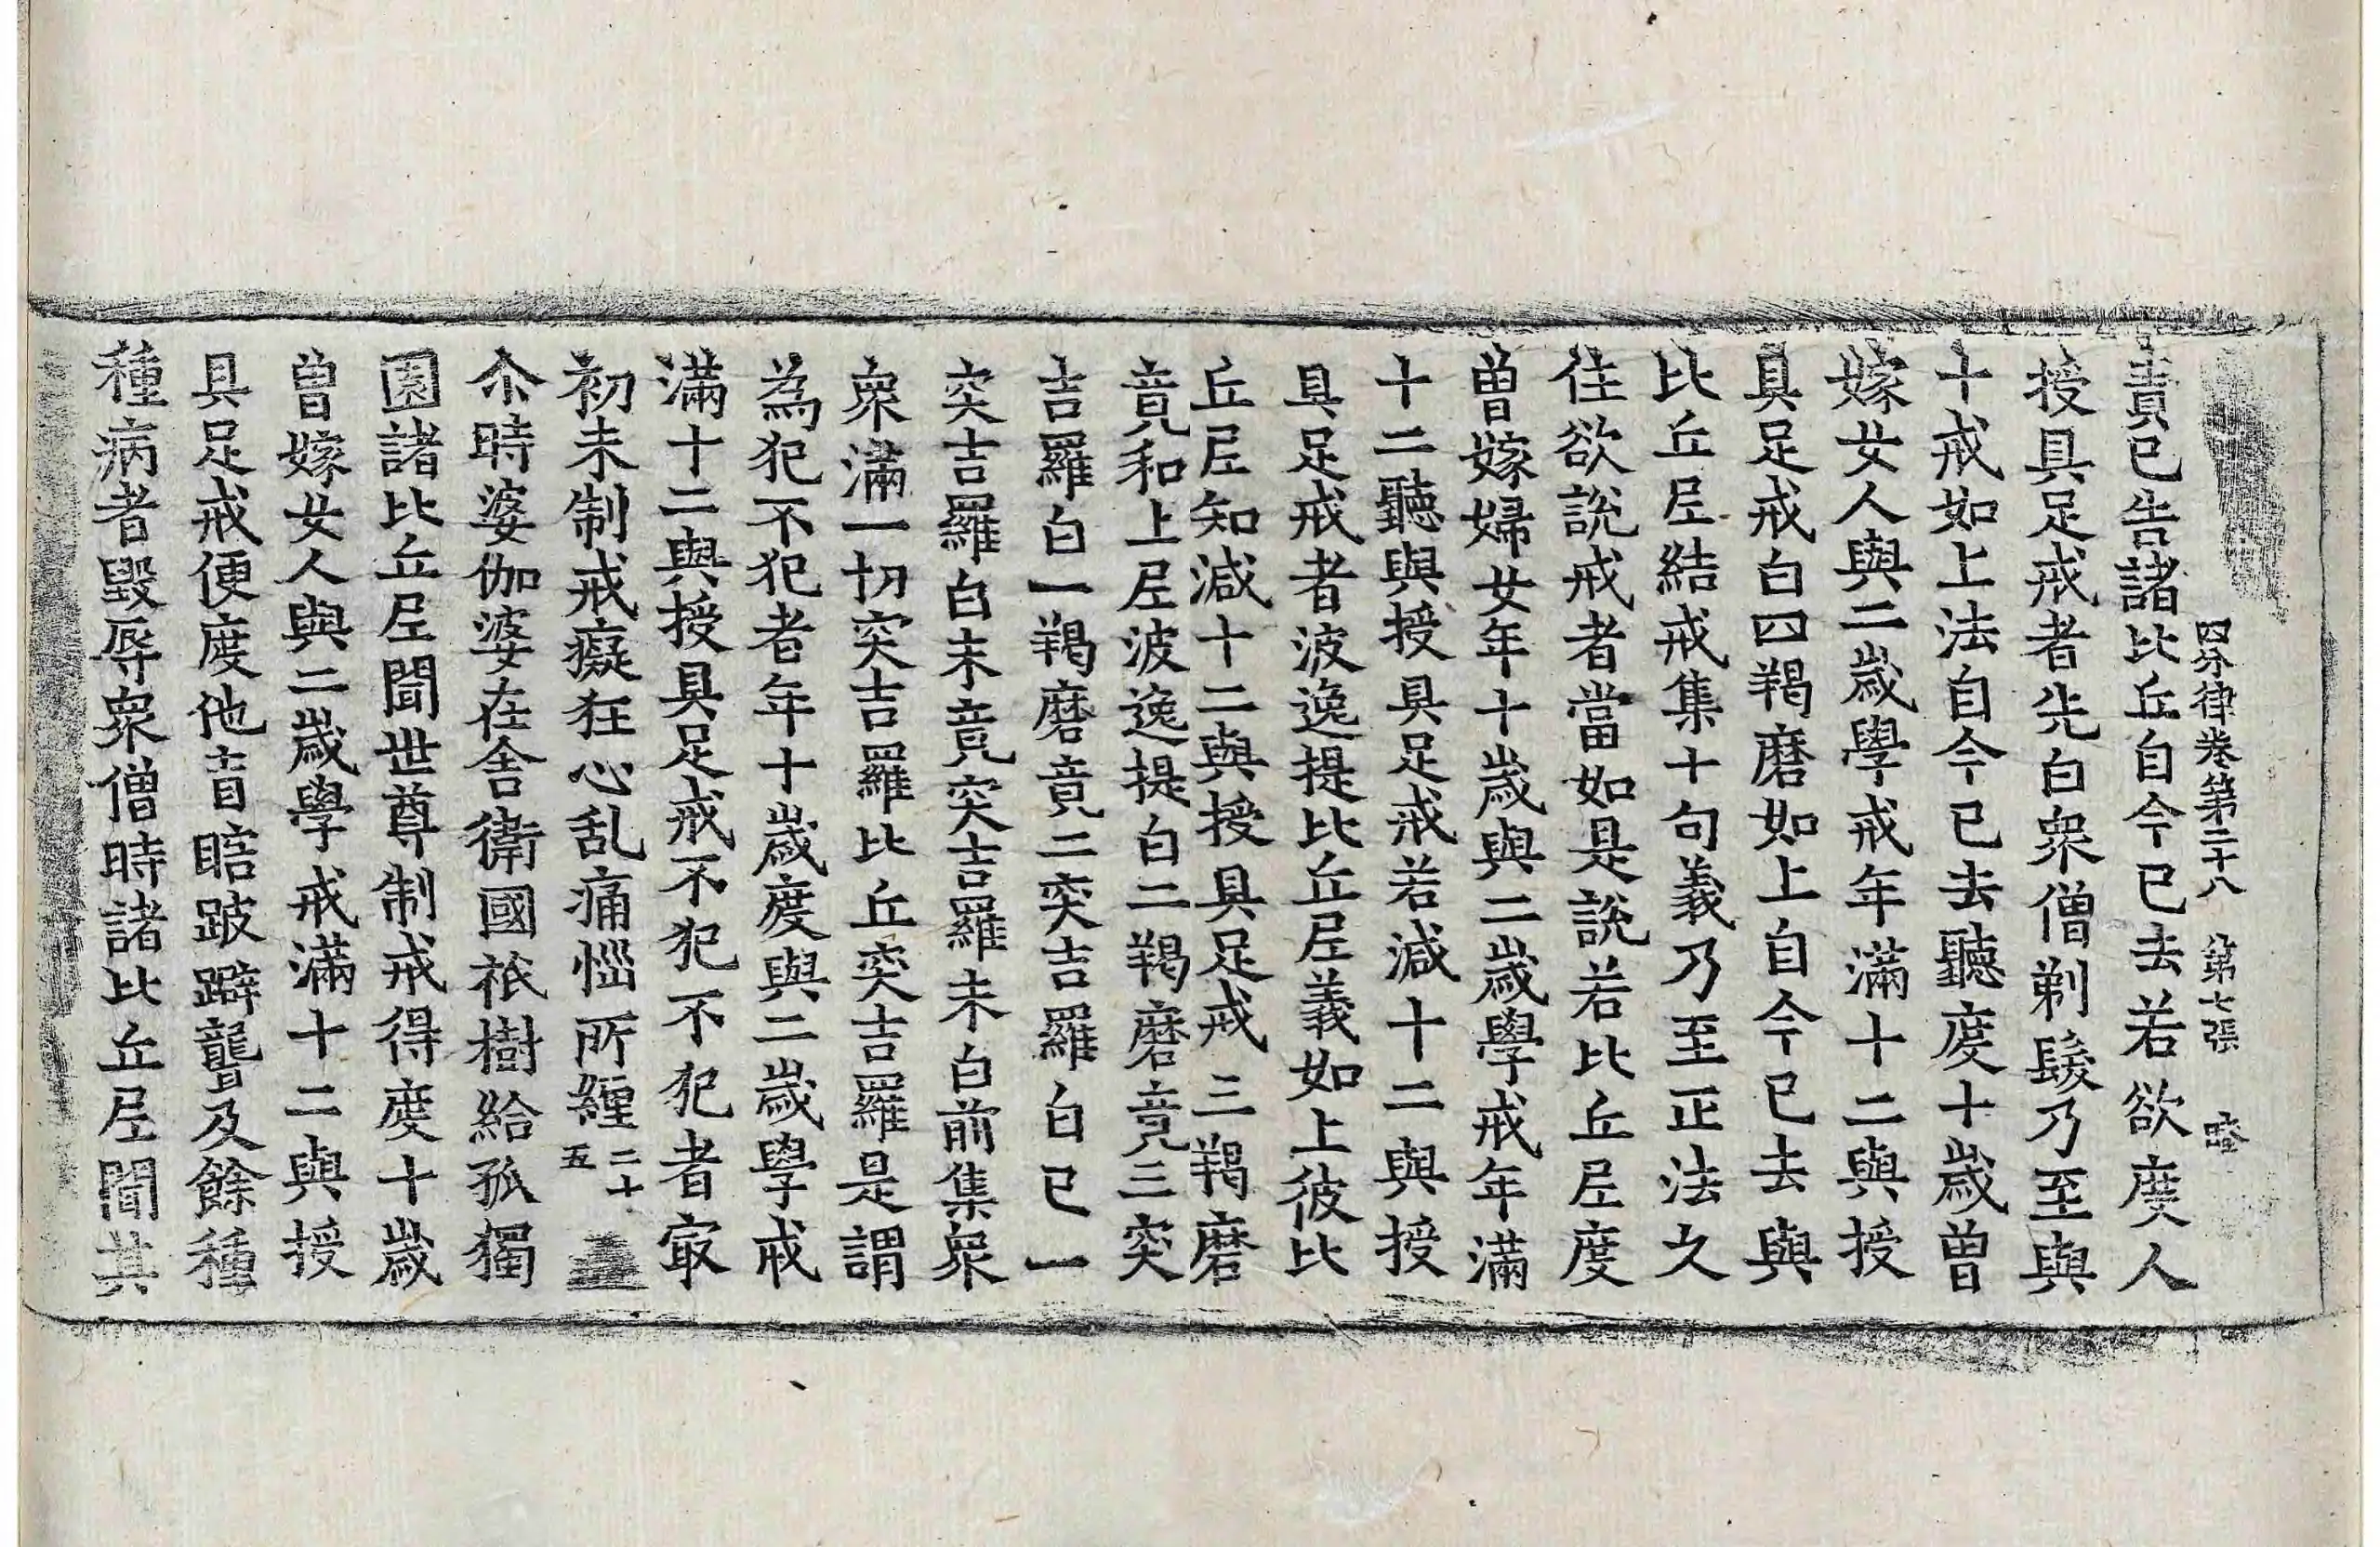 四分律卷第二十八　第七張
責已告諸比丘自今已去若欲度人
授具足戒者先白衆僧剃髮乃至與
十戒如上法自今已去聽度十歲曾
嫁女人與二歲學戒年滿十二與授
具足戒白四羯磨如上自今已去與
比丘尼結戒集十句義乃至正法久
住欲說戒者當如是說若比丘尼度
曾嫁婦女年十歲與二歲學戒年滿
十二聽與授具足戒若減十二與授
具足戒者波逸提比丘尼義如上彼比
丘尼知減十二與授具足戒三羯磨
竟和上尼波逸提白二羯磨竟三突
吉羅白一羯磨竟二突吉羅白已一
突吉羅白未竟突吉羅未白前集衆
衆滿一切突吉羅比丘突吉羅是謂
為犯不犯者年十歲度與二歲學戒
滿十二與授具足戒不犯不犯者㝡
初未制戒癡狂心乱痛惱所纏二十五
尒時婆伽婆在舍衛國祇樹給孤獨
園諸比丘尼聞世尊制戒得度十歲
曾嫁女人與二歲學戒滿十二與授
具足戒便度他盲瞎跛躃聾及餘種
種病者毀辱衆僧時諸比丘尼聞其